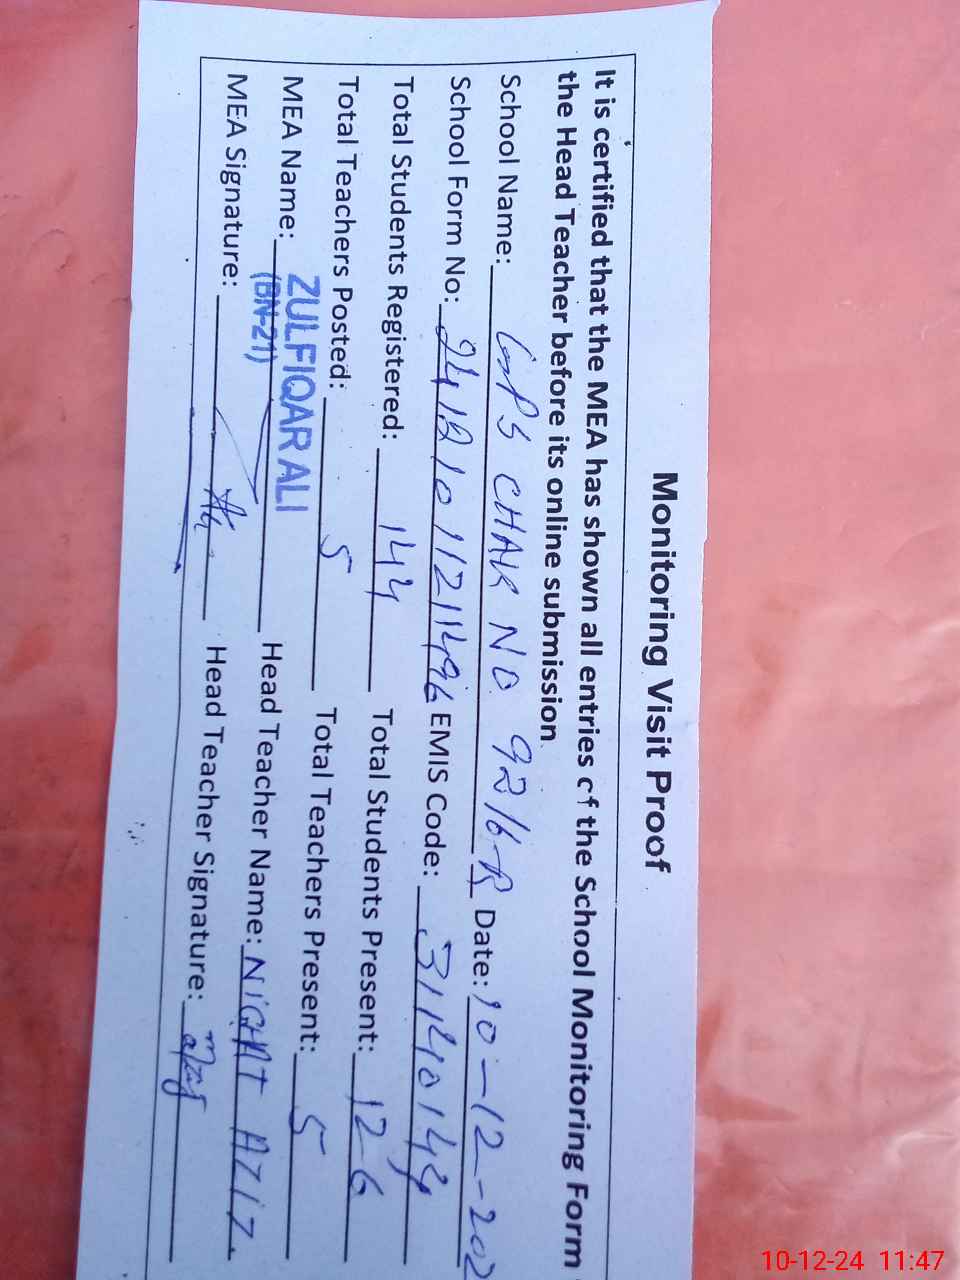 Monitoring Visit Proof
It is certified that the MEA has shown all entries of the School Monitoring Form
the Head Teacher before its online submission
School Name: GPS CHAK NO 92/6-R Date: 10-12-202
School Form No: EMIS Code: 31140144
Total Students Registered: 144 Total Students Present: 126
Total Teachers Posted: 5 Total Teachers Present: 5
MEA Name: ZULFIQAR ALI Head Teacher Name: NIGHT AZIZ
(BN-21)
MEA Signature: Head Teacher Signature:
10-12-24 11:47